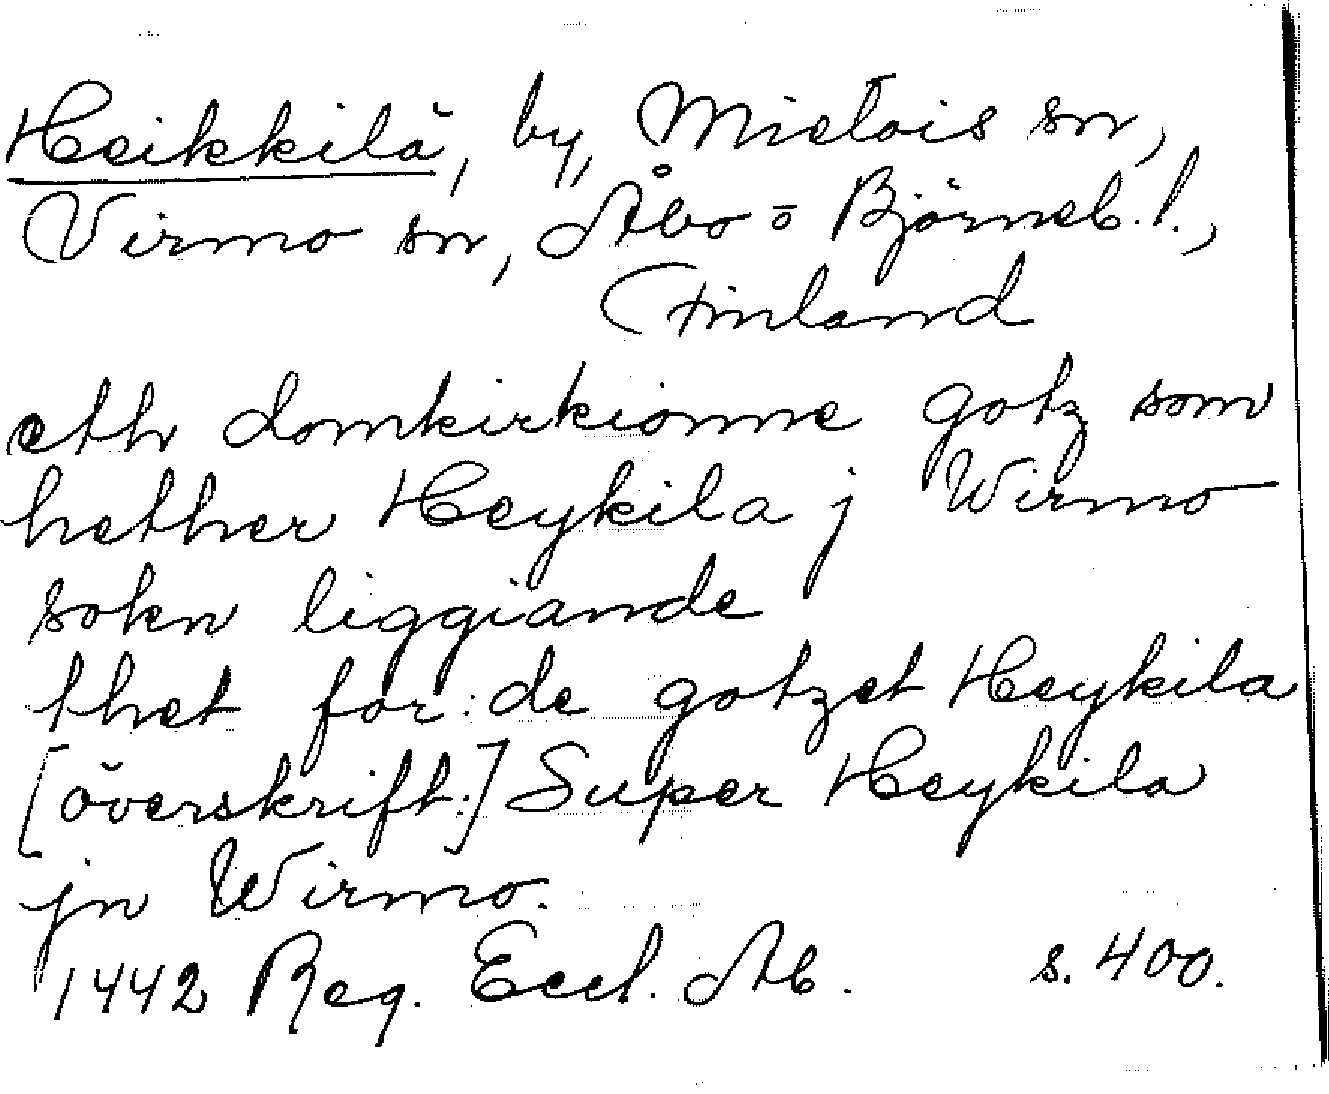 Heikkilä, by, Mietois sn,
Virmo sn, Åbo o Björneb. l.,
Finland
eth domkirkionne gotz som
hether Heykila j Wirmo
sokn liggiande
thet for:de gotzet Heykila
[överskrift:] Super Heykila
jn Wirmo.
1442 Reg. Eccl. Ab. s. 400.